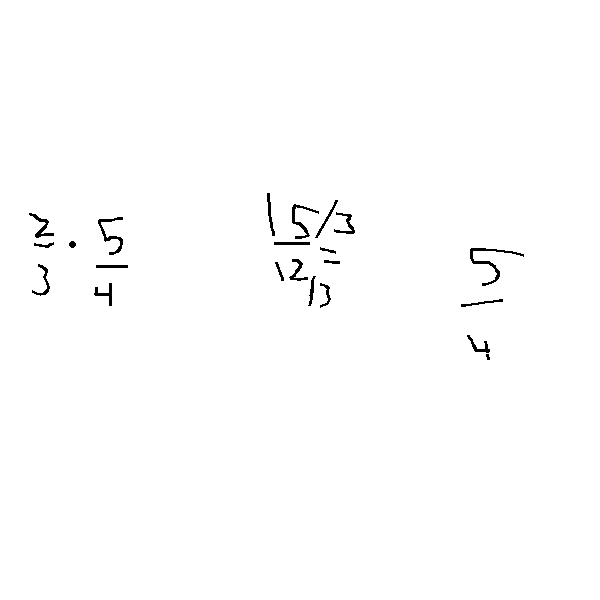 2/3 · 5/4
15/3 / 12/3 =
5/4